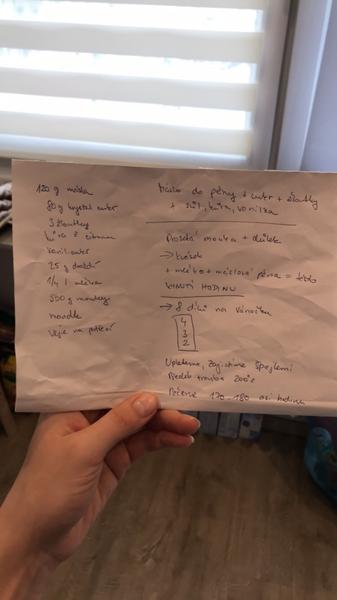 120 g másla
80 g krystal cukr
3 žloutky
kůra z citronu
vanil. cukr
25 g droždí
1/4 l mléka
500 g mouky
mandle
vejce na potření
Máslo do pěny + cukr + žloutky
+ sůl, kůra, vanilka
Prosetá mouka + důlek
→ kvásek
+ mléko + máslová pěna = těsto
KYNUTÍ HODINU
→ 8 dílů na vánočku
4
3
2
Upleteme, zajistíme špejlemi
Předeh trouba 200°C
Pečeme 170-180 asi hodinu